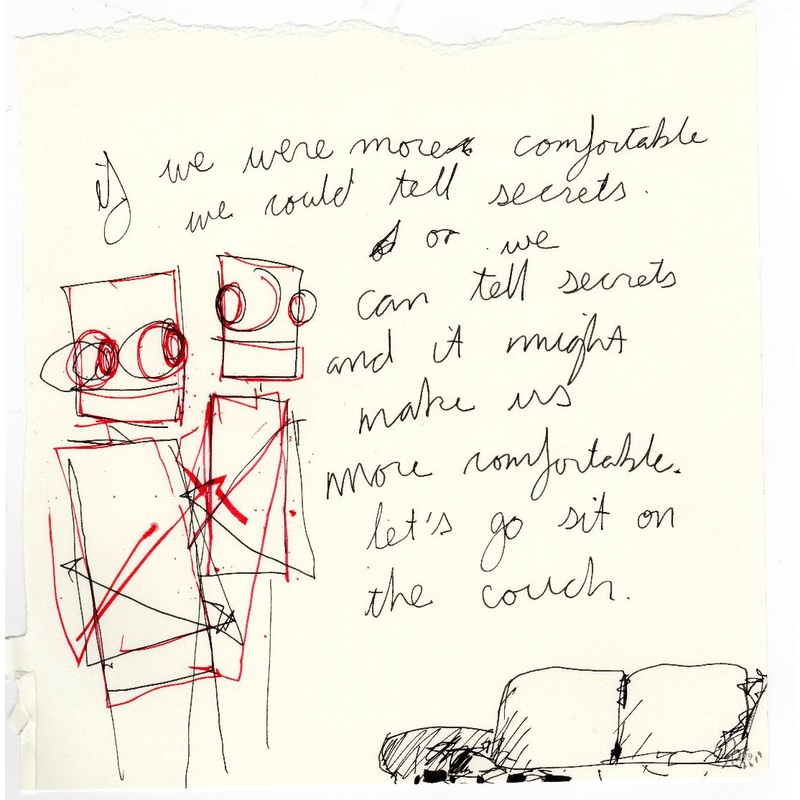 if we were more comfortable
we could tell secrets.
or we
can tell secrets
and it might
make us
more comfortable.
let's go sit on
the couch.